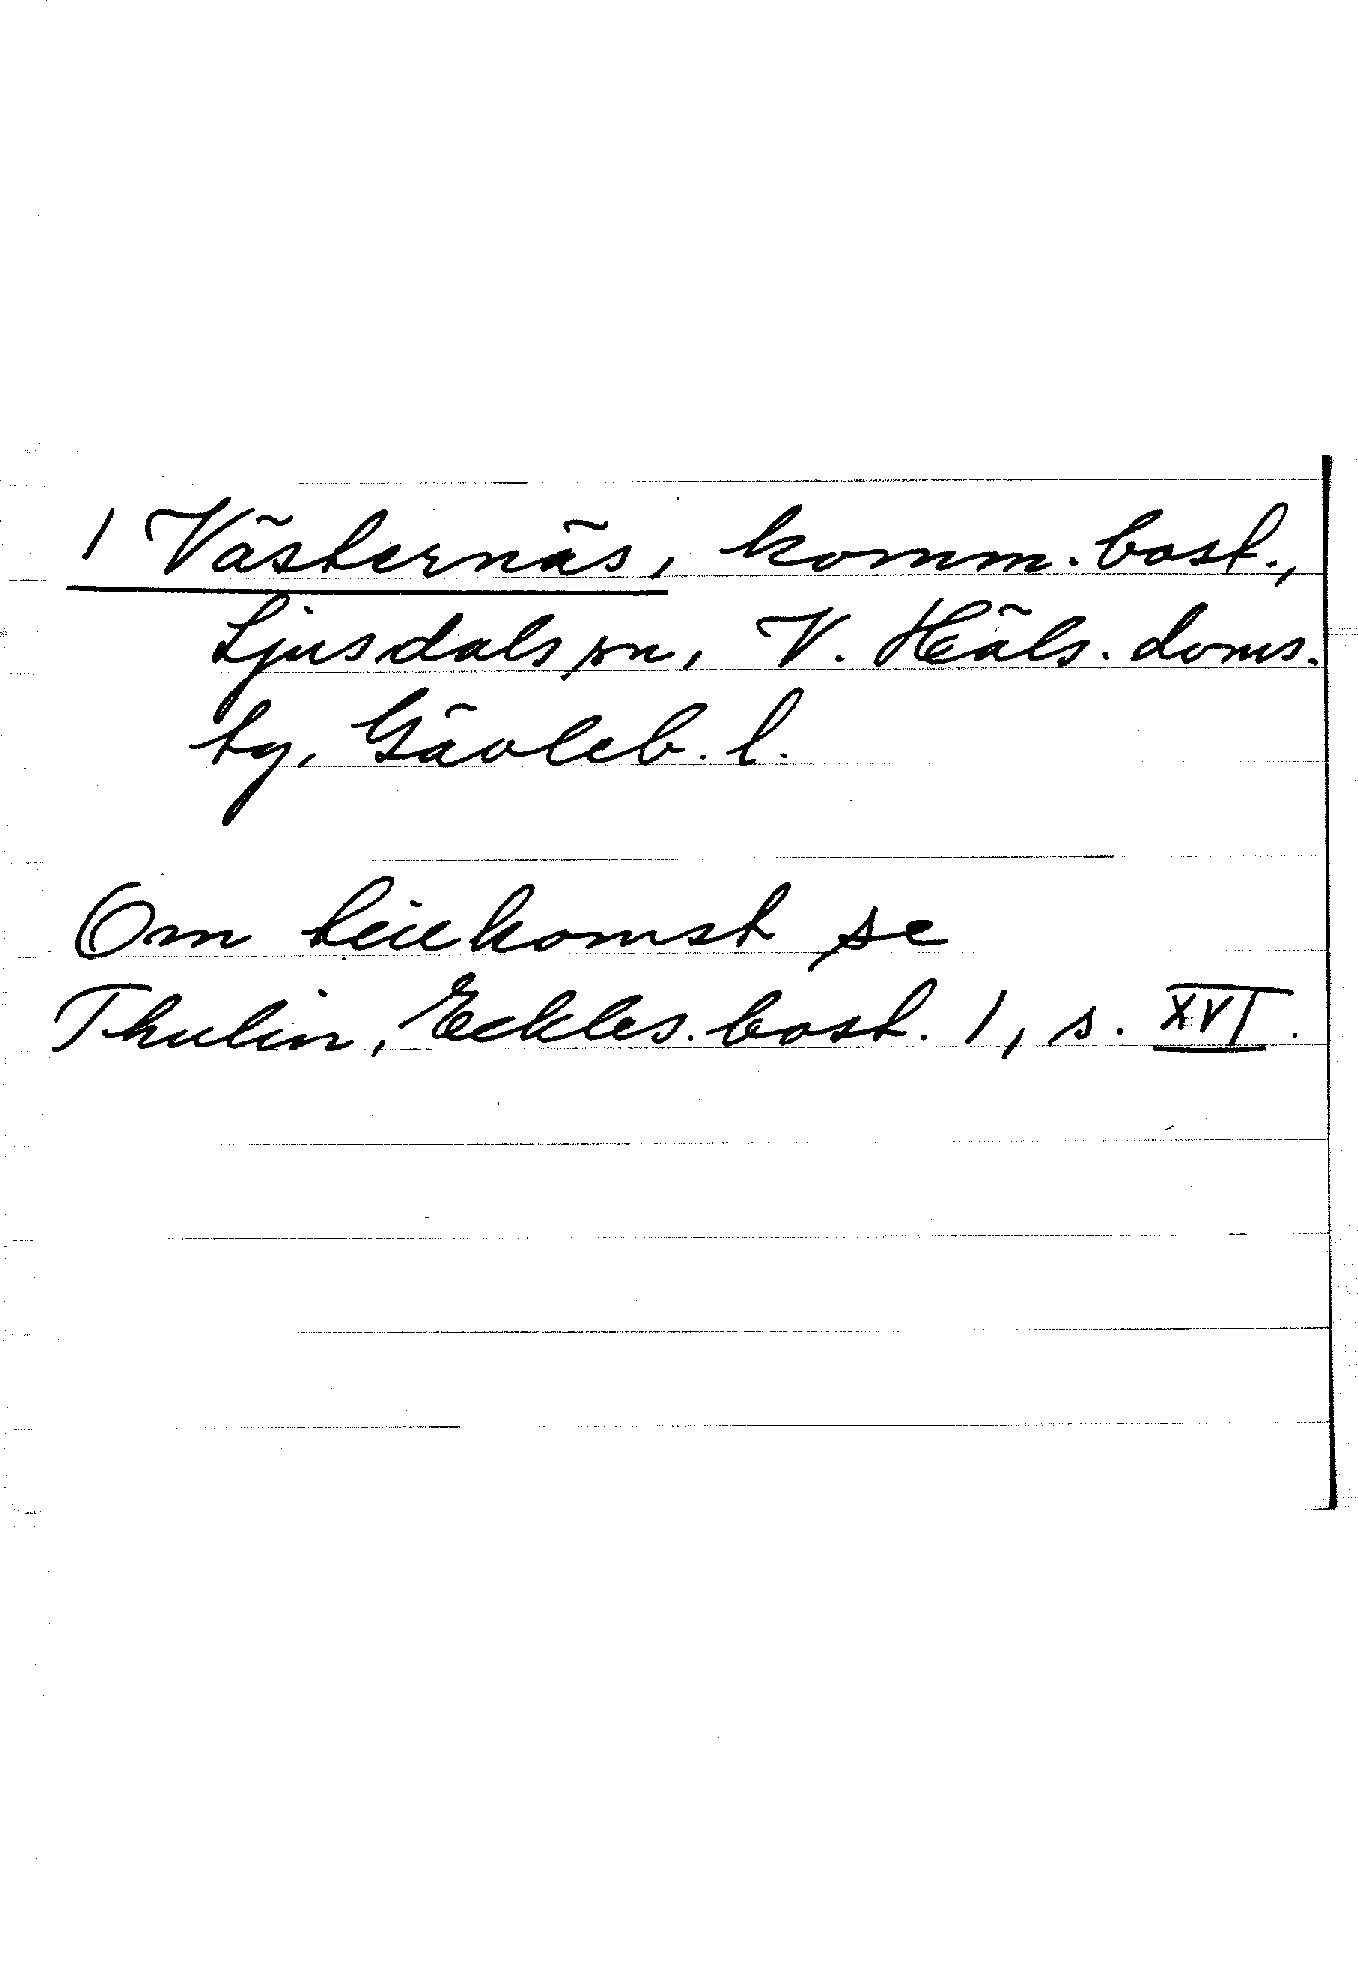 1 Västernäs, komm. bost.,
Ljusdals sn, V. Häls. doms.
tg, Gävleb. l.
Om tillkomst se
Thulin, Eckles. bost. 1, s. XVI.